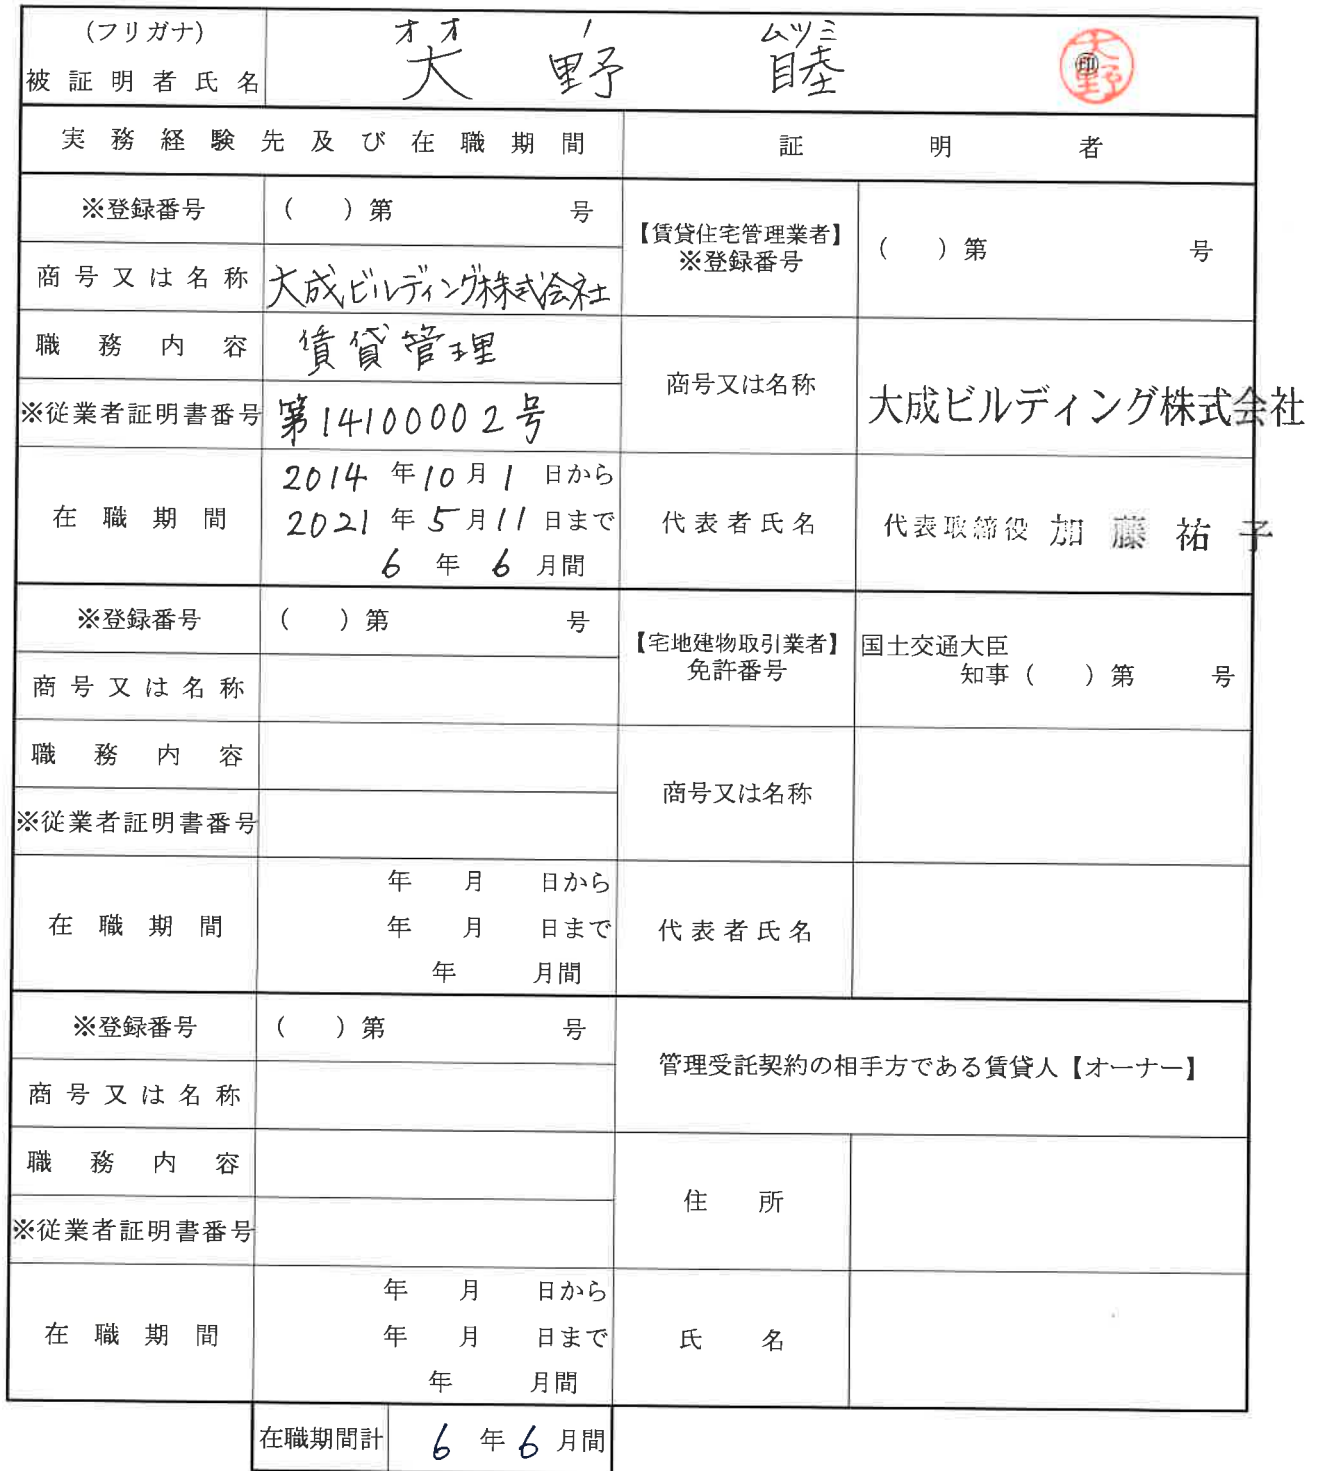 (フリガナ) オオ ノ ムツミ
被証明者氏名 大野 睦 ㊞ 大野
実務経験先及び在職期間 証明者
※登録番号 ( ) 第 号
【賃貸住宅管理業者】
※登録番号 ( ) 第 号
商号又は名称 大成ビルディング株式会社
職務内容 賃貸管理
商号又は名称 大成ビルディング株式会社
※従業者証明書番号 第14100002号
在職期間
2014年10月1日から
2021年5月11日まで
6年6月間
代表者氏名 代表取締役 加藤祐子
※登録番号 ( ) 第 号
【宅地建物取引業者】
免許番号
国土交通大臣
知事 ( ) 第 号
商号又は名称
職務内容
商号又は名称
※従業者証明書番号
在職期間
年 月 日から
年 月 日まで
年 月間
代表者氏名
※登録番号 ( ) 第 号
管理受託契約の相手方である賃貸人【オーナー】
商号又は名称
職務内容
住所
※従業者証明書番号
在職期間
年 月 日から
年 月 日まで
年 月間
氏名
在職期間計 6年6月間